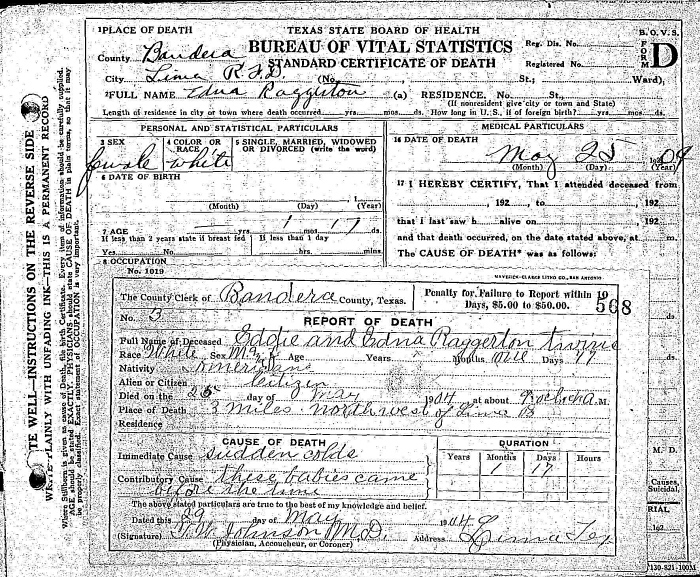 1 PLACE OF DEATH
TEXAS STATE BOARD OF HEALTH
BUREAU OF VITAL STATISTICS
STANDARD CERTIFICATE OF DEATH
B.O.V.S.
FORM D
Reg. Dis. No.
Registered No.
County Bandera
City Lima R.F.D. (No. St.; Ward),
2 FULL NAME Edna Raggerton (a) RESIDENCE. No. St.,
(If nonresident give city or town and State)
Length of residence in city or town where death occurred yrs. mos. ds. How long in U. S., if of foreign birth? yrs. mos. ds.
PERSONAL AND STATISTICAL PARTICULARS
3 SEX
female
4 COLOR OR RACE
white
5 SINGLE, MARRIED, WIDOWED OR DIVORCED (write the word)
6 DATE OF BIRTH
(Month) (Day) (Year)
7 AGE yrs. 1 mos. 17 ds.
If less than 2 years state if breast fed
If less than 1 day
Yes No hrs. mins.
8 OCCUPATION
MEDICAL PARTICULARS
16 DATE OF DEATH
May 25 04
(Month) (Day) (Year)
17 I HEREBY CERTIFY, That I attended deceased from
, 192 , to , 192
that I last saw h alive on , 192
and that death occurred, on the date stated above, at m.
The CAUSE OF DEATH* was as follows:
No. 1019
MAVERICK-CLARKE LITHO CO., SAN ANTONIO
The County Clerk of Bandera County, Texas.
Penalty for Failure to Report within 10 Days, $5.00 to $50.00.
568
No. 3
REPORT OF DEATH
Full Name of Deceased Eddie and Edna Raggerton twins
Race White Sex M & F Age Years Months one Days 17
Nativity Americans
Alien or Citizen Citizen
Died on the 25 day of May 1904 at about M.
Place of Death 3 miles northwest of Lima
Residence
CAUSE OF DEATH
DURATION
Years Months Days Hours
1 17
Immediate Cause sudden colds
Contributory Cause these babies came
before the time
The above stated particulars are true to the best of my knowledge and belief.
Dated this 29 day of May 1904
(Signature) Johnson M.D. Address Lima Tex
(Physician, Accoucheur, or Coroner)
ds.
ds.
M. D.
Causes,
Suicidal,
RIAL
192
TE WELL—INSTRUCTIONS ON THE REVERSE SIDE
WRITE PLAINLY WITH UNFADING INK—THIS IS A PERMANENT RECORD
Where Stillborn is given as cause of Death, file birth Certificate. Every item of information should be carefully supplied.
AGE should be stated EXACTLY. PHYSICIANS should state CAUSE OF DEATH in plain terms, so that it may
be properly classified. Exact statement of OCCUPATION is very important.